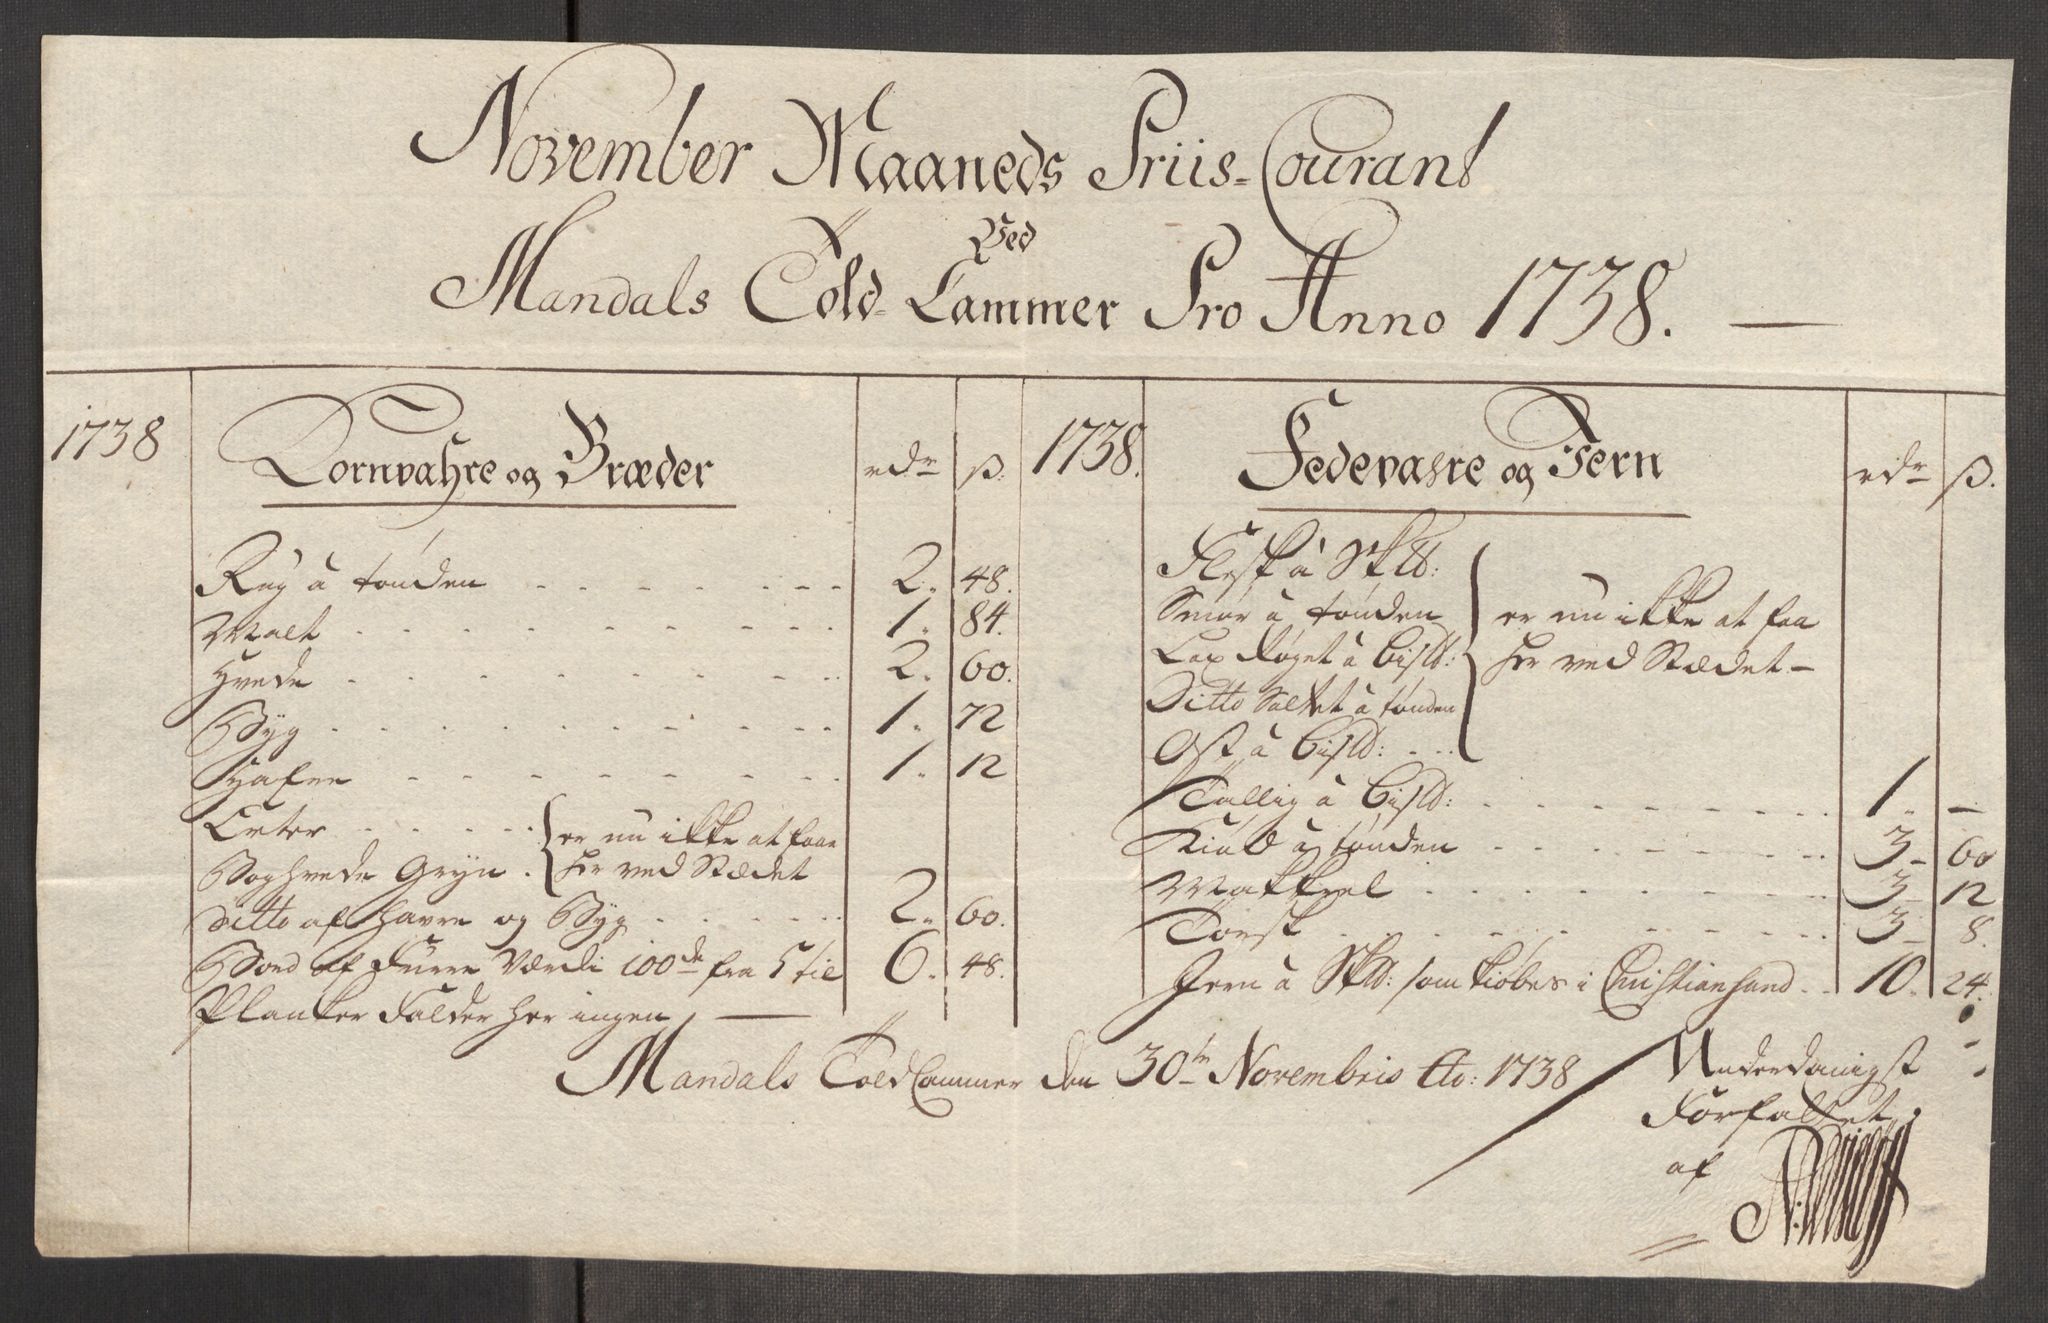 November Maaneds Priis-Courant
Ved
Mandals Told-Cammer Pro Anno 1738.
1738 Cornvahre og Bræder rdr ß.
Rug à tønden 2. 48.
Malt 1. 84.
Hvede 2. 60.
Byg 1. 72
Hafre 1. 12
Erter
Boghvede Gryn
er nu ikke at faae
her ved Stædet
ditto af Havre og Byg 2. 60.
Bord af Furre Værdi 100de fra 5 til 6. 48.
Planker Falder her ingen
1738. Fedevahre og Jern rdr ß.
Flesk à Sk℔:
Smør à tønden
Lax Røget à Bis℔:
Ditto Saltet à tønden
Ost à Bis℔:
er nu ikke at faa
her ved Stædet
Tallig à Bis℔: 1. -
Kiød à tønden 3 - 60
Makkrel 3 - 12
Torsk 3 - 8.
Jern à Sk℔: som kiøbes i Christiansand 10. 24.
Mandals Told Cammer den 30te Novembris Ao: 1738
Underdanigst
Forfattet
af